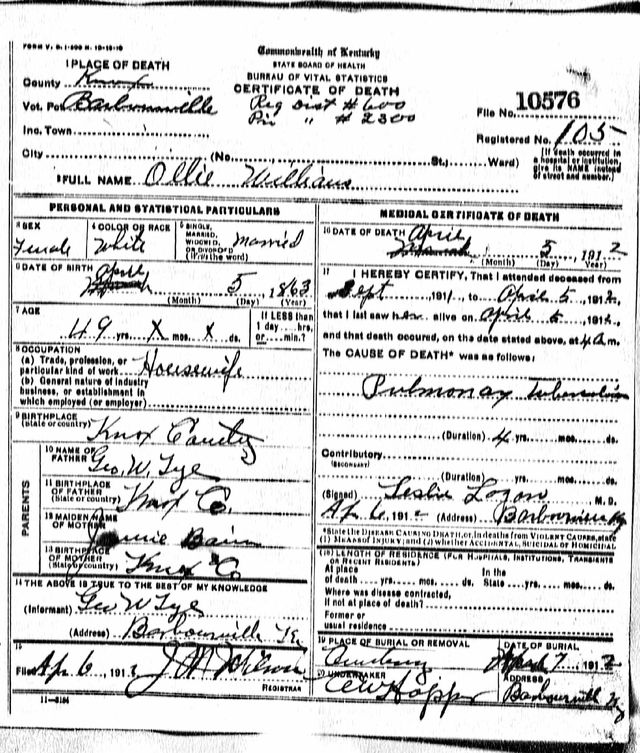 FORM V. S. 1-
Commonwealth of Kentucky
STATE BOARD OF HEALTH
BUREAU OF VITAL STATISTICS
CERTIFICATE OF DEATH
1 PLACE OF DEATH
County Knox
Vot. Pct Barbourville
Reg Dist # 600
Pri " # 2300
File No. 10576
Inc. Town
Registered No. 105
City (No. St.; Ward)
[If death occurred in a hospital or institution, give its NAME instead of street and number.]
2 FULL NAME Ollie Williams
PERSONAL AND STATISTICAL PARTICULARS
3 SEX Female
4 COLOR OR RACE White
5 SINGLE, MARRIED, WIDOWED, OR DIVORCED (Write the word) Married
6 DATE OF BIRTH April 5, 1863
(Month) (Day) (Year)
7 AGE 49 yrs. X mos. X ds.
If LESS than 1 day....hrs. or.....min.?
8 OCCUPATION
(a) Trade, profession, or particular kind of work Housewife
(b) General nature of industry business, or establishment in which employed (or employer)
9 BIRTHPLACE (State or country) Knox County
PARENTS
10 NAME OF FATHER Geo. W. Tye
11 BIRTHPLACE OF FATHER (State or country) Knox Co.
12 MAIDEN NAME OF MOTHER Bain
13 BIRTHPLACE OF MOTHER (State or country) Knox Co
14 THE ABOVE IS TRUE TO THE BEST OF MY KNOWLEDGE
(Informant) Geo W Tye
(Address) Barbourville Ky
15
Filed Apr 6, 1912 J M
REGISTRAR
11—3184
MEDICAL CERTIFICATE OF DEATH
16 DATE OF DEATH April 5, 1912
(Month) (Day) (Year)
17 I HEREBY CERTIFY, That I attended deceased from
Sept, 1911, to April 5, 1912,
that I last saw her alive on April 5, 1912,
and that death occured, on the date stated above, at 4 a m.
The CAUSE OF DEATH* was as follows:
Pulmonary Tuberculosis
(Duration) 4 yrs. mos. ds.
Contributory
(SECONDARY)
(Duration) yrs. mos. ds.
(Signed) Leslie Logan M. D.
Ap 6, 1912 (Address) Barbourville Ky
*State the DISEASE CAUSING DEATH, or, in deaths from VIOLENT CAUSES, state (1) MEANS OF INJURY; and (2) whether ACCIDENTAL, SUICIDAL OF HOMICIDAL
18 LENGTH OF RESIDENCE (FOR HOSPITALS, INSTITUTIONS, TRANSIENTS OR RECENT RESIDENTS)
At place of death yrs. mos. ds. In the State yrs. mos. ds.
Where was disease contracted, If not at place of death?
Former or usual residence
19 PLACE OF BURIAL OR REMOVAL
DATE OF BURIAL
7, 1912
20 UNDERTAKER
Hopper
ADDRESS
Barbourville Ky